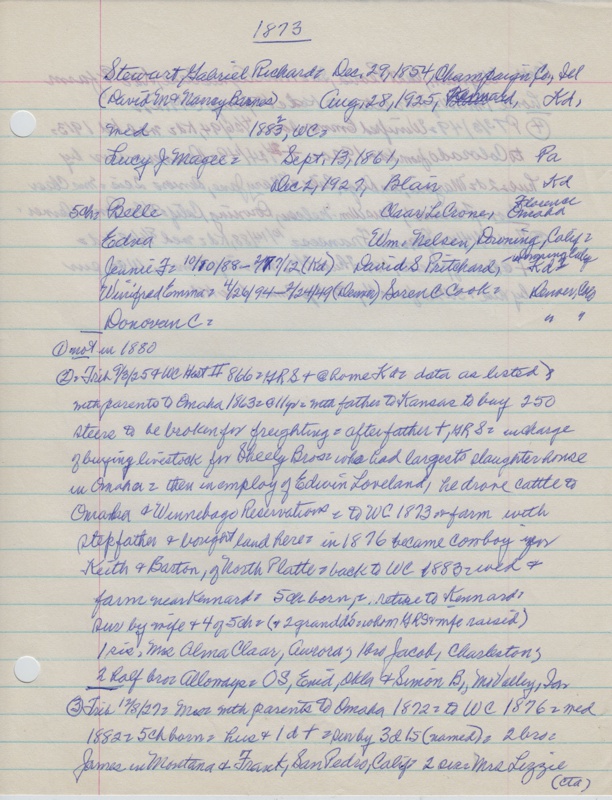 1873
Stewart, Gabriel Richard = Dec. 29, 1854, Champaign Co, Ill
(David M & Nancy Barnes) Aug. 28, 1925, Kd,
med 1883, WC =
Lucy J. Magee = Sept. 13, 1861, Pa
Dec 2, 1927, Blair Kd
5ch = Belle Claar LeCrone, Florence Omaha
Edna Wm. Nelsen, Downing, Calif =
Jennie F = 10/10/88 - 12 (Kd) David S. Pritchard, Kd =
Winifred Emma = 4/26/94 - 2/24/49 (Denver) Soren C Cook = Denver, Colo
Donovan C = " "
① not in 1880
② = Trib 9/3/25 & WC Hist II 866 = GRS + @ home Kd = data as listed;
with parents to Omaha 1863 = @ 11yr = with father to Kansas to buy 250
steers to be broken for freighting = after father +, GRS = in charge
of buying livestock for Sheely Bros = who had largest slaughter house
in Omaha = then in employ of Edwin Loveland, he drove cattle to
Omaha & Winnebago Reservations = to WC 1873 = on farm with
stepfather & bought land here = in 1876 became cowboy for
Keith & Barton, of North Platte = back to WC 1883 = wed &
farm near Kennard = 5ch born, retire to Kennard =
sur by wife & 4 of 5ch = (& 2 granddts = whom GRS & wife raised)
1 sis, Mrs Alma Claar, Aurora; 1 bro Jacob, Charleston;
2 half bros Alloways = OS, Enid, Okla & Simon B, Mo Valley, Ia =
③ Trib 12/8/27 = Mrs = with parents to Omaha 1872 = to WC 1876 = med
1882 = 5ch born = hus & 1 d + = sur by 3 d 1s (named) = 2 bro =
James in Montana & Frank, San Pedro, Calif = 2 sis = Mrs Lizzie
(ctd)